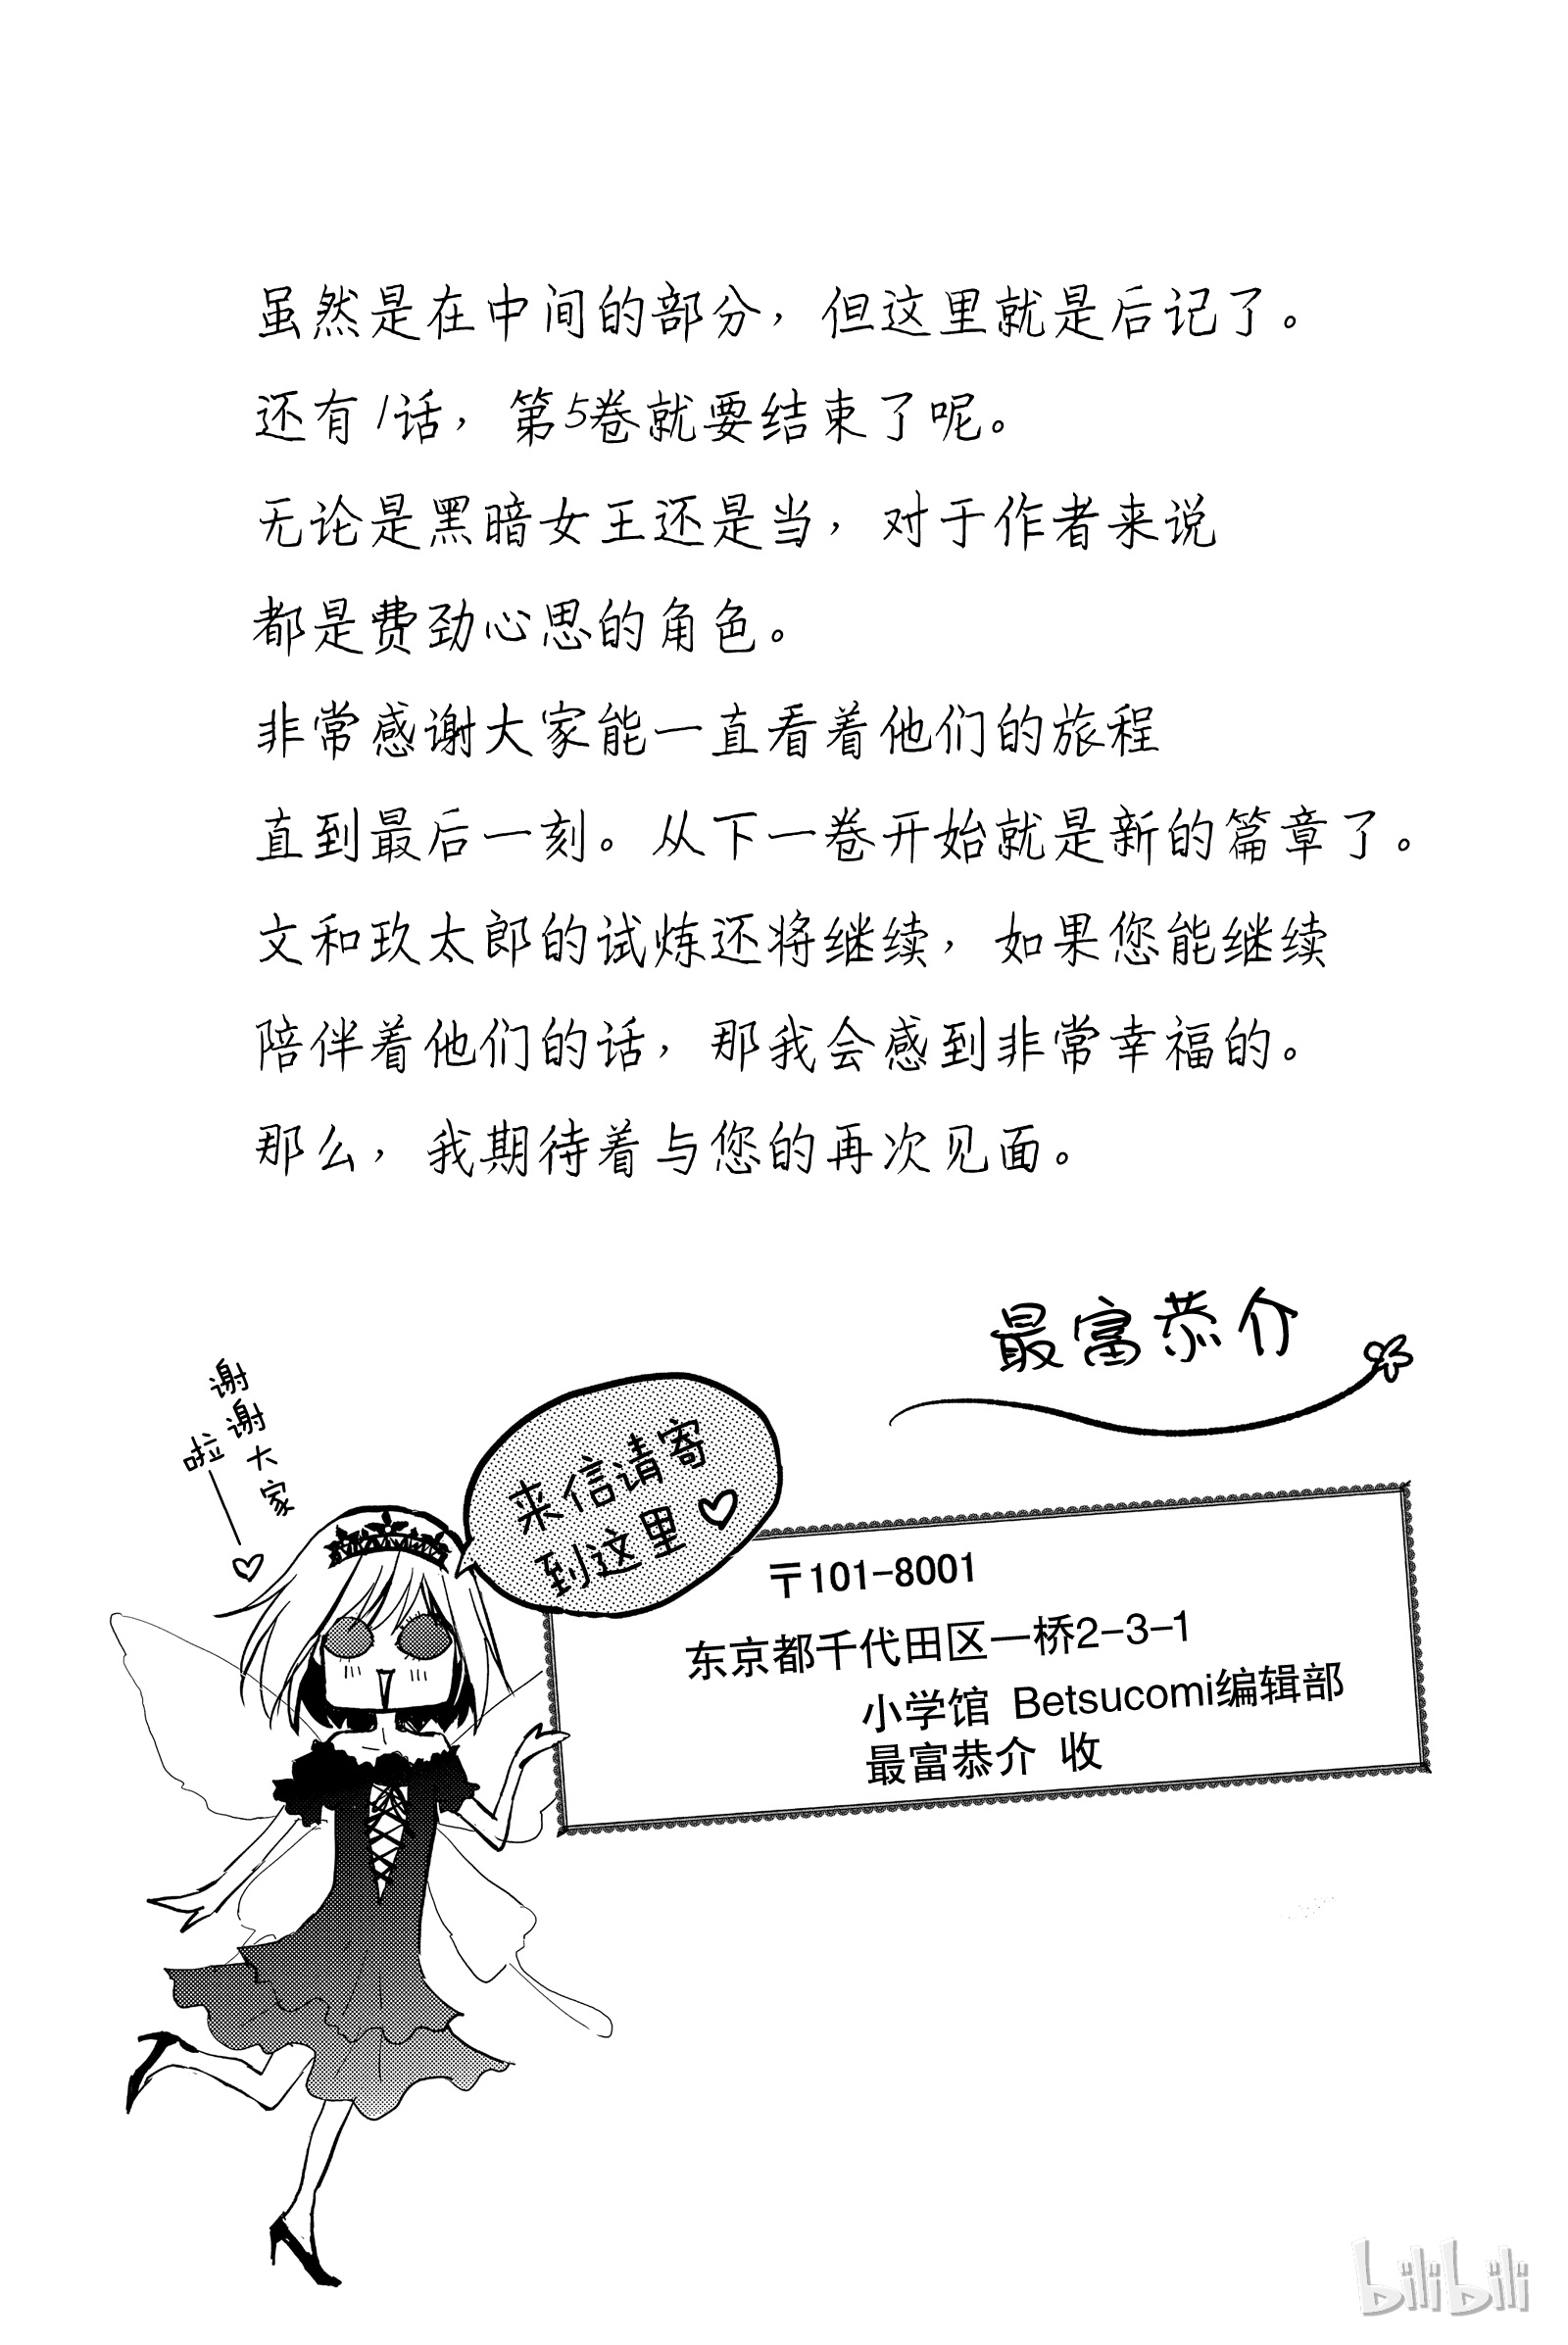 虽然是在中间的部分，但这里就是后记了。
还有1话，第5卷就要结束了呢。
无论是黑暗女王还是当，对于作者来说
都是费劲心思的角色。
非常感谢大家能一直看着他们的旅程
直到最后一刻。从下一卷开始就是新的篇章了。
文和玖太郎的试炼还将继续，如果您能继续
陪伴着他们的话，那我会感到非常幸福的。
那么，我期待着与您的再次见面。
最富恭介
谢谢大家
啦——♡
来信请寄
到这里♡
〒101-8001
东京都千代田区一桥2-3-1
小学馆 Betsucomi编辑部
最富恭介 收
bilibili